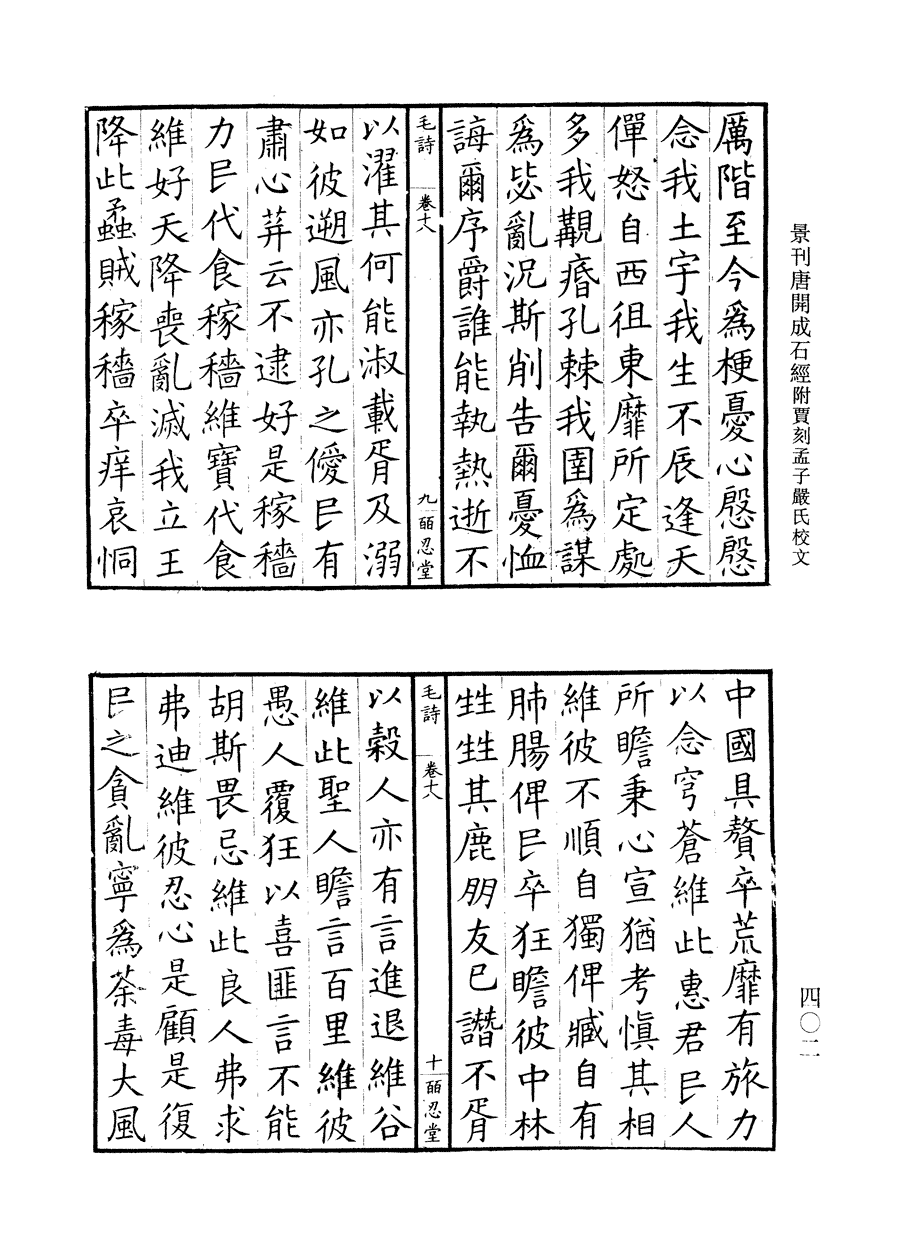 景刊唐開成石經附賈刻孟子嚴氏校文
厲階至今爲梗憂心慇慇
念我土宇我生不辰逢天
僤怒自西徂東靡所定處
多我覯痻孔棘我圉爲謀
爲毖亂況斯削告爾憂恤
誨爾序爵誰能執熱逝不
毛詩 卷十八 九 皕忍堂
以濯其何能淑載胥及溺
如彼遡風亦孔之僾民有
肅心荓云不逮好是稼穡
力民代食稼穡維寶代食
維好天降喪亂滅我立王
降此蟊賊稼穡卒痒哀恫
四〇二
中國具贅卒荒靡有旅力
以念穹蒼維此惠君民人
所瞻秉心宣猶考慎其相
維彼不順自獨俾臧自有
肺腸俾民卒狂瞻彼中林
甡甡其鹿朋友已譖不胥
毛詩 卷十八 十 皕忍堂
以穀人亦有言進退維谷
維此聖人瞻言百里維彼
愚人覆狂以喜匪言不能
胡斯畏忌維此良人弗求
弗迪維彼忍心是顧是復
民之貪亂寧爲荼毒大風